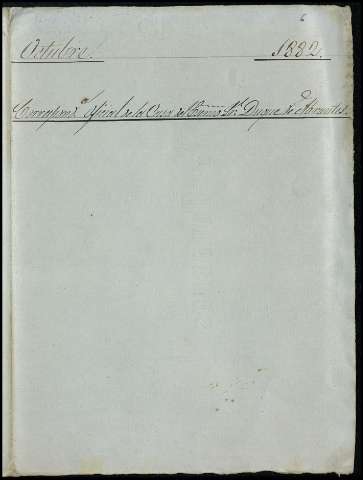 6
Octubre. 1882.
Correspond.ª oficial de la Casa del Exmo Sr. Duque de Abrantes.